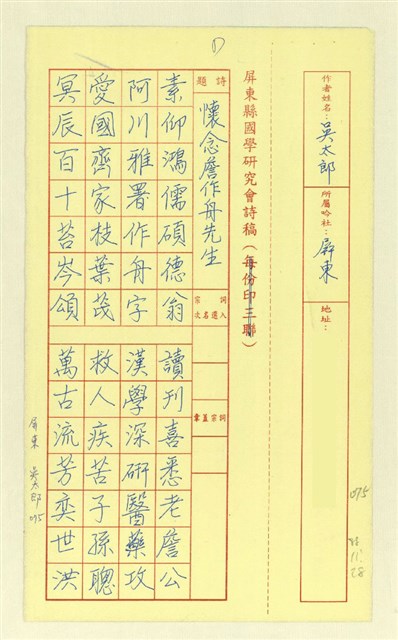 作者姓名：吳太郎
所屬吟社：屏東
地址：
屏東縣國學研究會詩稿（每份印三聯）
詩題 懷念詹作舟先生
詞宗入選名次
詞宗蓋章
素仰鴻儒碩德翁 讀刊喜悉老詹公
阿川雅署作舟字 漢學深研醫藥攻
愛國齊家枝葉茂 救人疾苦子孫聰
冥辰百十苔岑頌 萬古流芳奕世洪
屏東 吳太郎 075
075